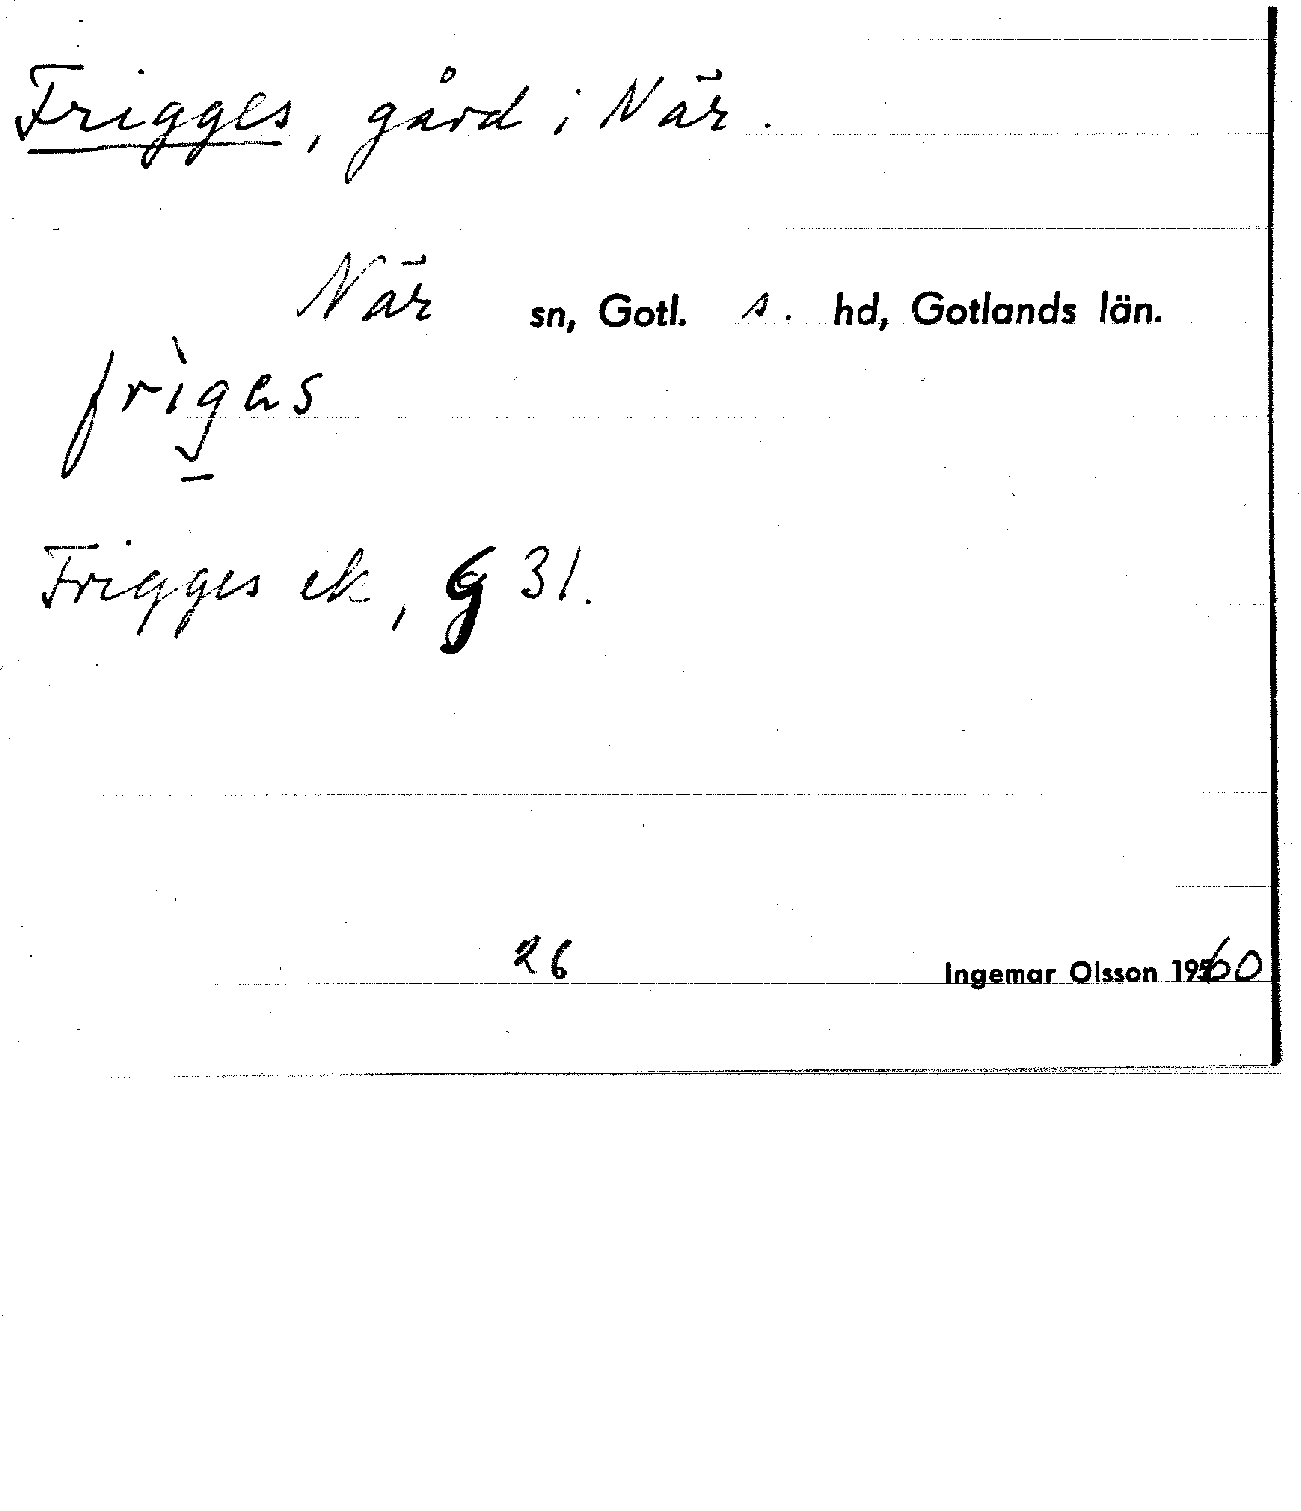 Frigges, gård i När.
När sn, Gotl. s. hd, Gotlands län.
frìgəs
Frigges ek, G 31.
26
Ingemar Olsson 1960